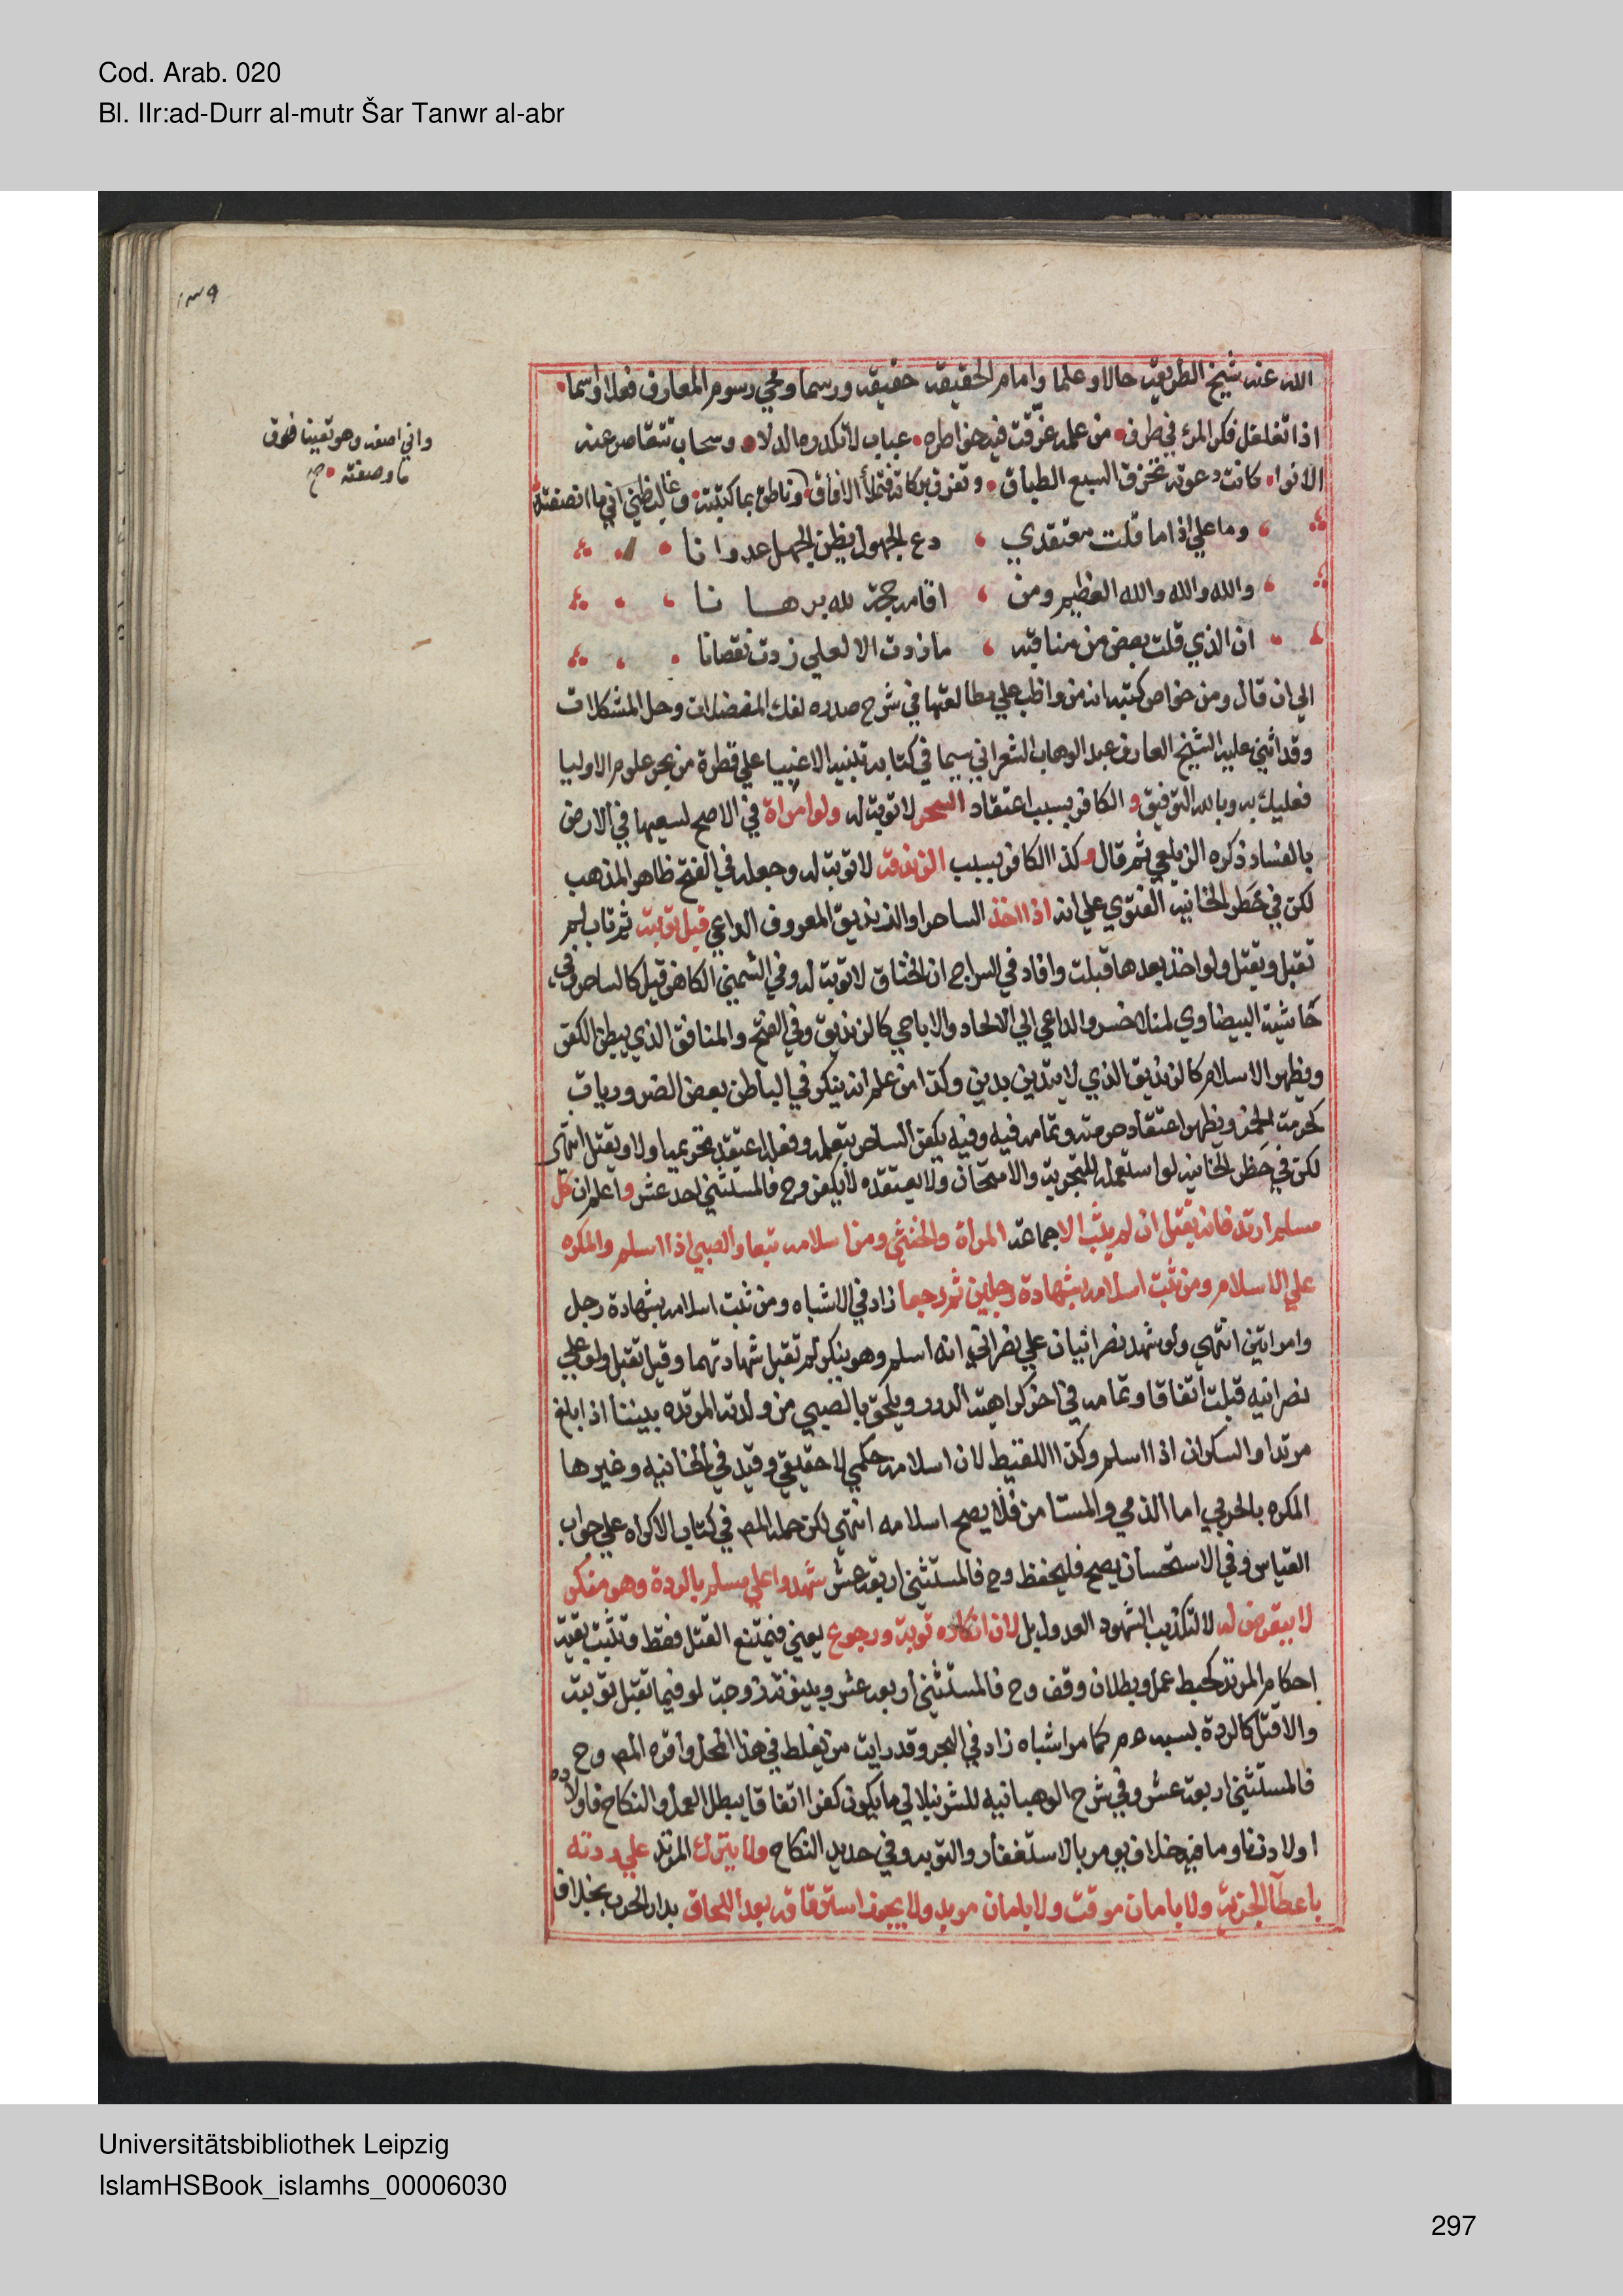 Cod. Arab. 020
Bl. IIr:ad-Durr al-mutr Šar Tanwr al-abr
١٣٩
الله عنه شيخ الطريقه حالا وعلما وامام الحقيقه حقيقه ورسما ومحي رسوم المعارف فعلا واسما
اذا تغلغل فكر المرء في طرف من علمه غرقت فيه خواطره عباب لا تكدره الدلاء وسحاب تتقاصر عنه
الانوا كانت دعوته تخرق السبع الطباق وتفرق بركاته فتملأ الافاق وناطق بما كتبته وغالب ظني اني ما انصفته
واني اصفه وهو يقينا فوق
ما وصفته صح
وما علي اذا ما قلت معتقدي دع الجهول يظن الجهل عدوانا
والله والله والله العظيم ومن اقامه حجة لله برهانا
ان الذي قلت بعض من مناقبه ما زدت الا لعلي زدت نقصانا
الي ان قال ومن خواص كتبه انه من واظب علي مطالعتها في شرح صدره لفك المعضلات وحل المشكلات
وقد اثني عليه الشيخ العارف عبد الوهاب الشعراني سيما في كتابه تنبيه الاغبيا علي قطرة من بحر علوم الاوليا
فعليك به وبالله التوفيق و الكافر بسبب اعتقاد السحر لا توبة له ولو امراة في الاصح لسعيها في الارض
بالفساد ذكره الزيلعي ثم قال و كذا الكافر بسبب الزندقة لا توبة له وجعله في الفتح ظاهر المذهب
لكن في حظر الخانية الفتوي علي انه اذا اخذ الساحر او الزنديق المعروف الداعي قبل توبته ثم تاب لم
تقبل ويقتل ولو اخذ بعدها قبلت وافاد في السراج ان الخناق لا توبة له وفي الشمني الكاهن قيل كالساحر وفي
حاشية البيضاوي لمنلا خسرو الداعي الي الالحاد والاباحي كالزنديق وفي الفتح والمنافق الذي يبطن الكفر
ويظهر الاسلام كالزنديق الذي لا يتدين بدين وكذا من علم انه ينكر في الباطن بعض الضروريات
كحرمة الخمر ويظهر اعتقاد حرمته وتمامه فيه وفيه يكفر الساحر بتعلمه وفعله اعتقد تحريمه اولا ويقتل انتهي
لكن في حظر الخانية لو استعمله للتجربة والامتحان ولا يعتقده لا يكفر وح فالمستثني احد عشر واعلم ان كل
مسلم ارتد فانه يقتل ان لم يتب الا جماعة المراة والخنثي ومن اسلامه تبعا والصبي اذا اسلم والمكره
علي الاسلام ومن ثبت اسلامه بشهادة رجلين ثم رجعا زاد في الاشباه ومن ثبت اسلامه بشهادة رجل
وامراتين انتهي ولو شهد نصرانيان علي نصراني انه اسلم وهو ينكر لم تقبل شهادتهما وقيل تقبل ولو علي
نصرانيه قبلت اتفاقا وتمامه في اخر كراهية الدرر ويلحق بالصبي من ولدته المرتدة بيننا اذا بلغ
مرتدا والسكران اذا اسلم وكذا اللقيط لان اسلامه حكمي لا حقيقي وقيد في الخانيه وغيرها
المكره بالحربي اما الذمي والمستامن فلا يصح اسلامه انتهي لكن حمله المص في كتاب الاكراه علي جواب
القياس وفي الاستحسان يصح فليحفظ وح فالمستثني اربعة عشر شهدوا علي مسلم بالردة وهو منكر
لا يتعرض له لا لتكذيب الشهود العدول بل لان انكاره توبة ورجوع يعني فيمتنع القتل فقط وتثبت بقية
احكام المرتد كحبط عمل وبطلان وقف وح فالمستثني اربعة عشر وبينونة زوجة لو فيما تقبل توبته
والا قتل كالردة بسبه عم كما مر اشباه زاد في البحر وقد رايت من يغلط في هذا المحل واقره المص وح
فالمستثني اربعة عشر وفي شرح الوهبانيه للشرنبلالي ما يكون كفرا اتفاقا يبطل العمل والنكاح فاولاده
اولاد زنا وما فيه خلاف يومر بالاستغفار والتوبه وفي تجديد النكاح ولا يترك المرتد علي ردته
باعطاء الجزية ولا بامان موقت ولا بامان موبد ولا يجوز استرقاقه بعد اللحاق بدار الحرب بخلاف
Universitätsbibliothek Leipzig
IslamHSBook_islamhs_00006030
297